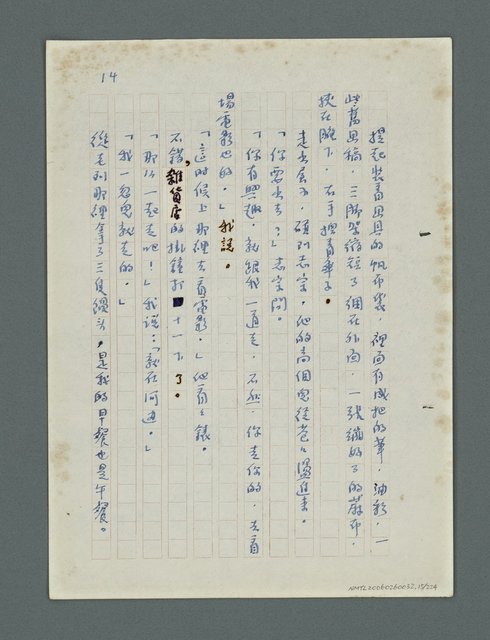 14
提起裝畫具的帆布袋，裡面有成把的筆，油彩，一
些舊畫稿，三腳架縮短了綑在外面，一張繃好了的麻布，
挾在腋下，右手握著傘子。
走出屋子，碰到志宏，他的高個兒從巷口邊進來。
「你要出去？」志宏問。
「你有興趣，就跟我一道走，不然，你走你的，去看
場電影也的。」我說。
「這時候上那裡去看電影。」他看看錶。
不錯，雜貨店的掛鐘打十一下了。
「那你一起走吧！」我說：「就在河邊。」
「我一忽兒就走的。」
從毛利那裡拿了三隻饅頭，是我的早餐也是午餐。
NMTL20060260032,15/224